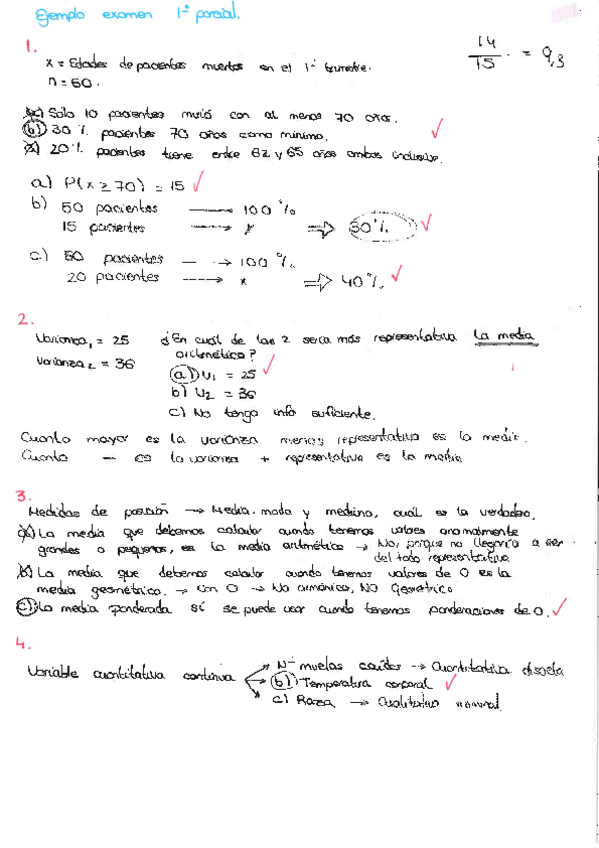 Ejemplo examen 1º parcial.
14/15 = 9,3
1.
x = Edades de pacientes muertos en el 1º trimestre.
n = 50.
a) Solo 10 pacientes murió con al menos 70 años.
b) 30% pacientes 70 años como mínimo.
c) 20% pacientes tiene entre 62 y 65 años ambos inclusive.
a) P(x ≥ 70) = 15
b) 50 pacientes → 100%
15 pacientes → x ⇒ 30%
c) 50 pacientes → 100%
20 pacientes → x ⇒ 40%
2.
Varianza₁ = 25 ¿En cuál de las 2 será más representativa la media
Varianza₂ = 36 aritmética?
a) V₁ = 25
b) V₂ = 36
c) No tengo info suficiente.
Cuanto mayor es la varianza menos representativa es la media.
Cuanto − es la varianza + representativa es la media
3.
Medidas de posición → Media, moda y mediana, cuál es la verdadera.
a) La media que debemos calcular cuando tenemos valores anormalmente
grandes o pequeños, es la media aritmética → No, porque no llegaría a ser
del todo representativa
b) La media que debemos calcular cuando tenemos valores de 0 es la
media geométrica. → con 0 → No armónica, NO Geométrica
c) La media ponderada sí se puede usar cuando tenemos ponderaciones de 0.
4.
Variable cuantitativa continua
Nº muelas caídas → Cuantitativa discreta
b) Temperatura corporal
c) Raza → Cualitativa nominal